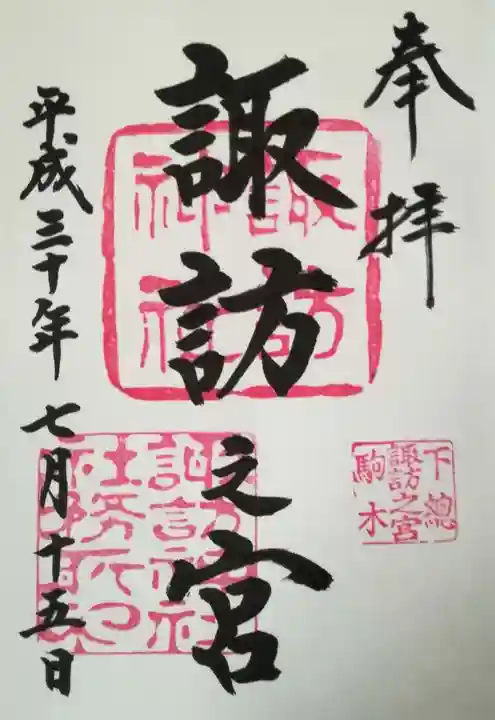 奉拝
下總
諏訪之宮
駒木
諏訪之宮
諏訪
神社
諏訪神社
社務所印
平成三十年七月十五日